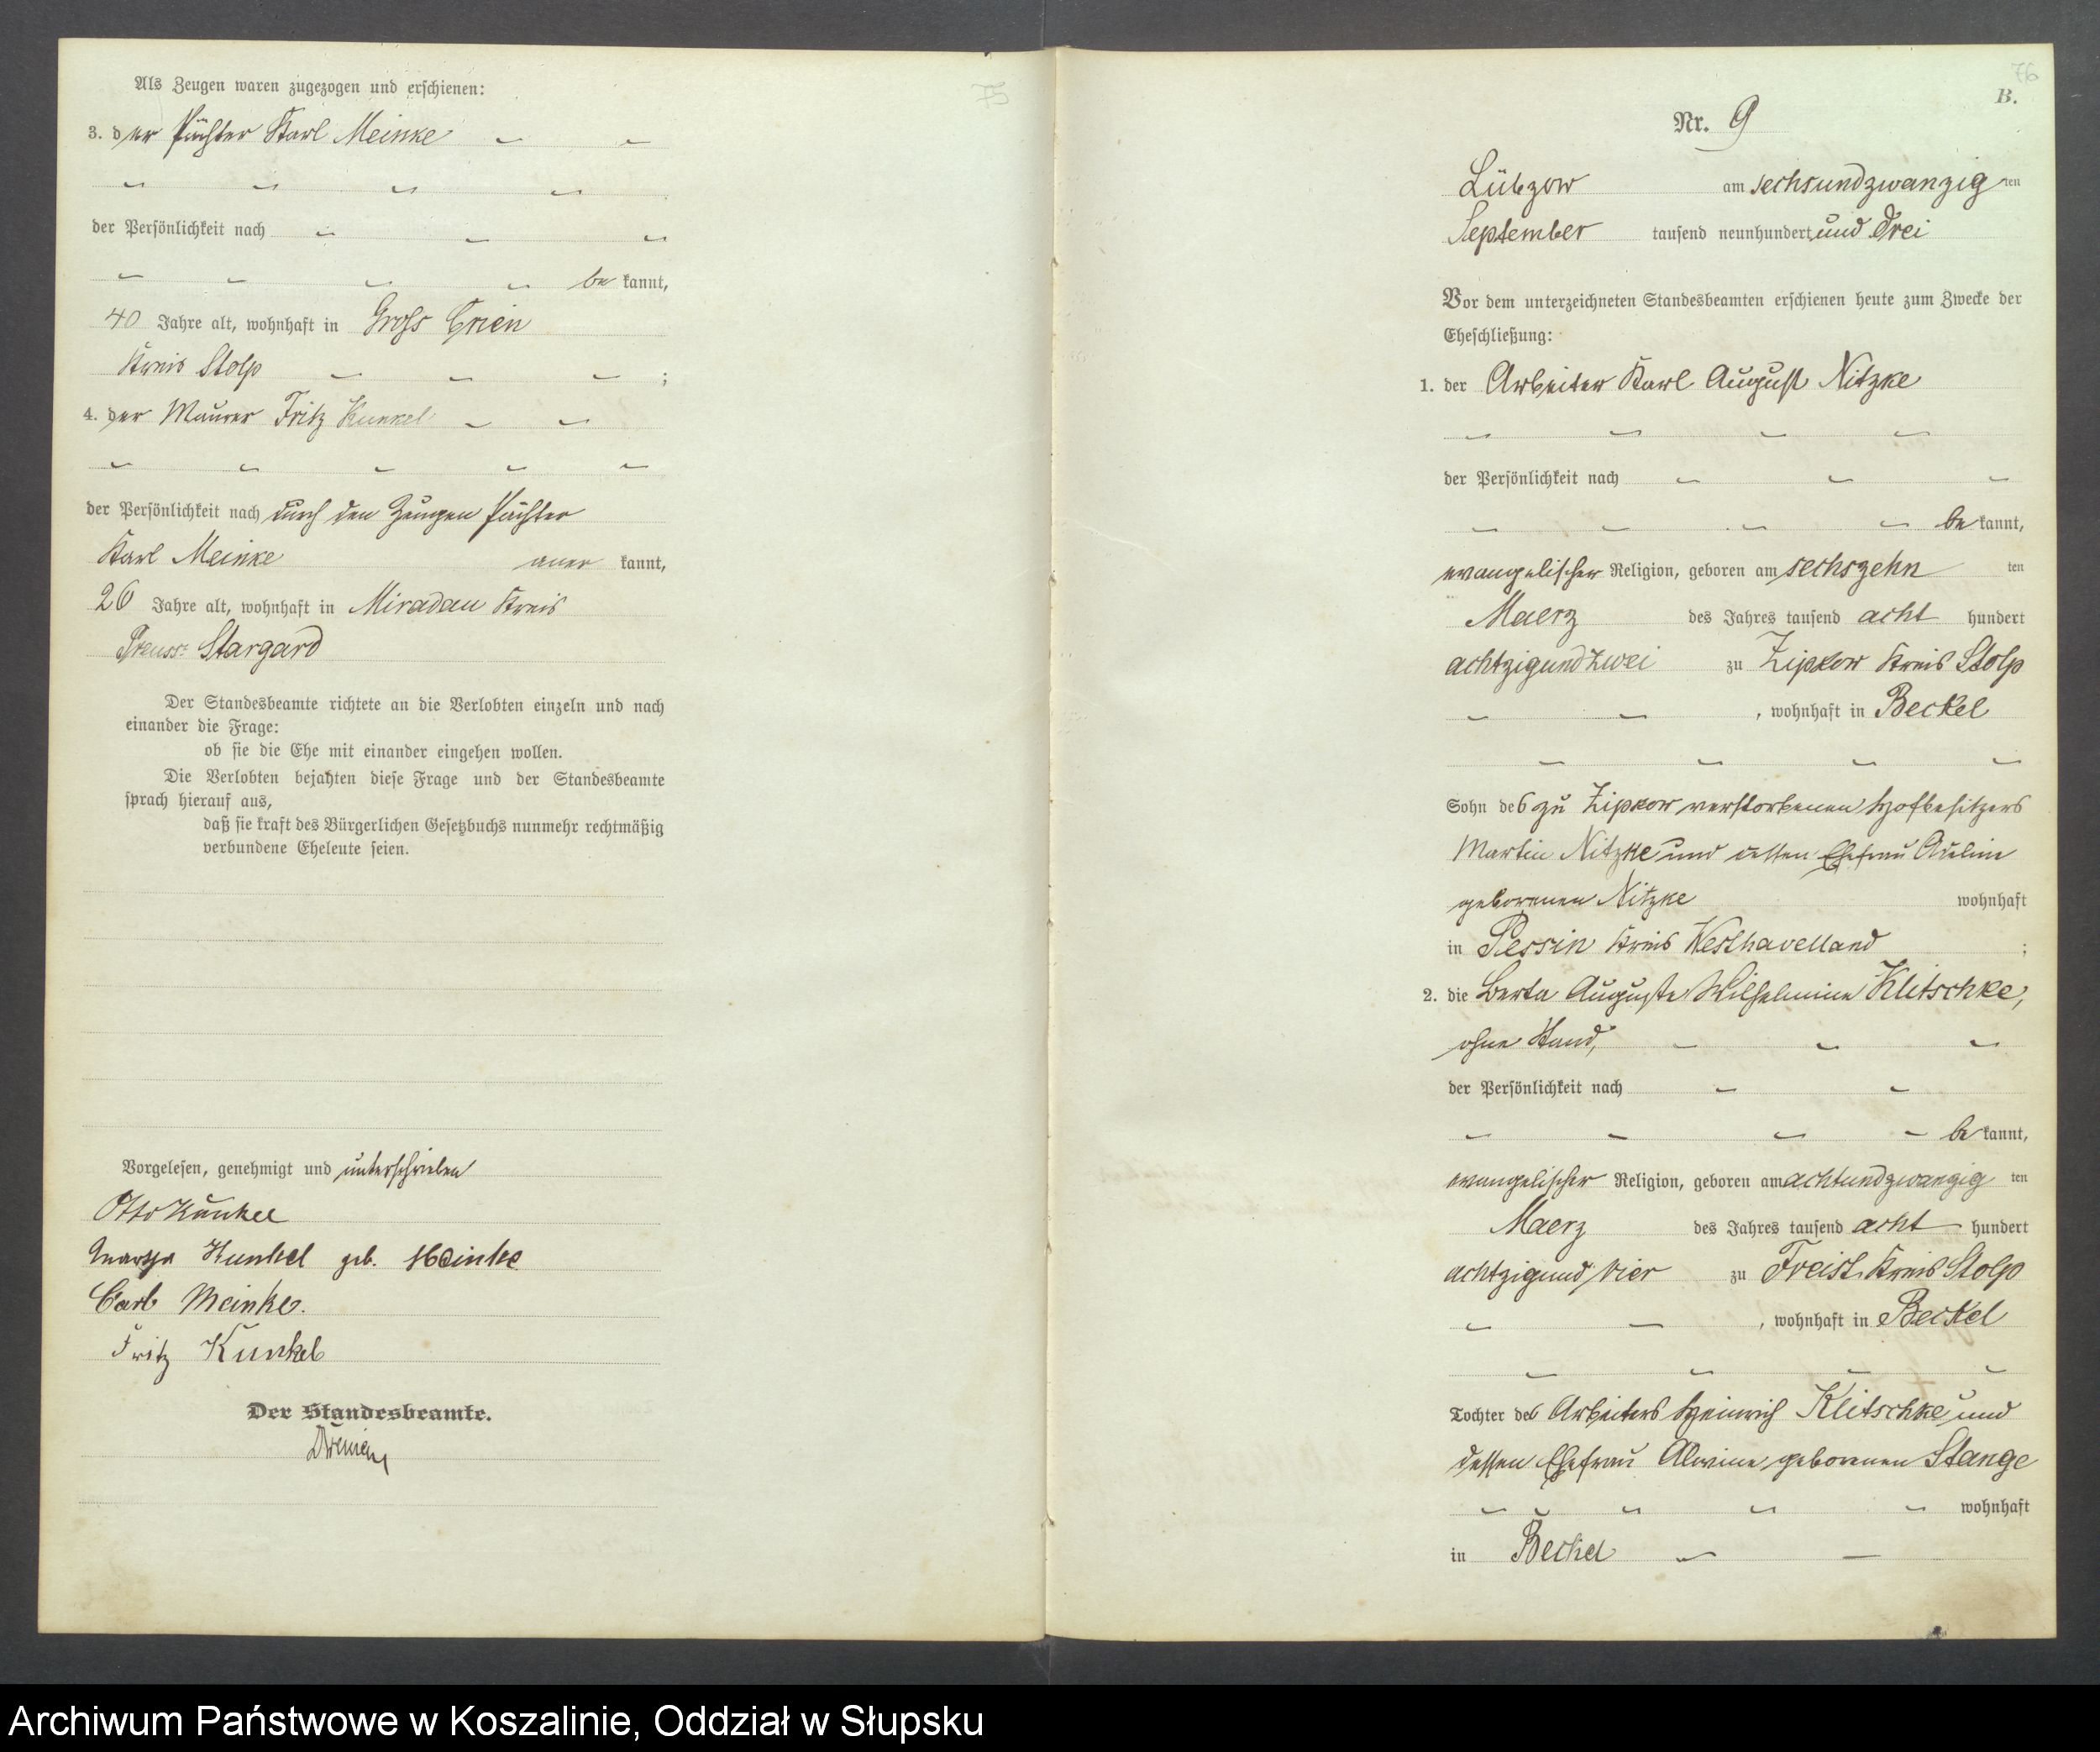 Als Zeugen waren zugezogen und erschienen:
3. der Pächter Karl Meinke
der Persönlichkeit nach
be kannt,
40 Jahre alt, wohnhaft in Gross Crien
Kreis Stolp ;
4. der Maurer Fritz Kunkel
der Persönlichkeit nach durch den Zeugen Pächter
Karl Meinke aner kannt,
26 Jahre alt, wohnhaft in Miradau Kreis
Preuss: Stargard
Der Standesbeamte richtete an die Verlobten einzeln und nach
einander die Frage:
ob sie die Ehe mit einander eingehen wollen.
Die Verlobten bejahten diese Frage und der Standesbeamte
sprach hierauf aus,
daß sie kraft des Bürgerlichen Gesetzbuchs nunmehr rechtmäßig
verbundene Eheleute seien.
Vorgelesen, genehmigt und unterschrieben
Otto Kunkel
Martha Kunkel geb. Meinke
Carl Meinke.
Fritz Kunkel
Der Standesbeamte.
75
76
B.
Nr. 9
Lübzow am sechsundzwanzig ten
September tausend neunhundert und drei
Vor dem unterzeichneten Standesbeamten erschienen heute zum Zwecke der
Eheschließung:
1. der Arbeiter Karl August Nitzke
der Persönlichkeit nach
be kannt,
evangelischer Religion, geboren am sechszehn ten
Maerz des Jahres tausend acht hundert
achtzigundzwei zu Zipkow Kreis Stolp
, wohnhaft in Beckel
Sohn des zu Zipkow verstorbenen Hofbesitzers
Martin Nitzke und dessen Ehefrau
geborenen Nitzke wohnhaft
in Pessin Kreis Westhavelland ;
2. die Berta Auguste Wilhelmine Klitschke,
ohne Stand,
der Persönlichkeit nach
be kannt,
evangelischer Religion, geboren am achtundzwanzig ten
Maerz des Jahres tausend acht hundert
achtzigund vier zu Freist Kreis Stolp
, wohnhaft in Beckel
Tochter des Arbeiters Heinrich Klitschke und
dessen Ehefrau Alwine, geborenen Stange
wohnhaft
in Beckel
Archiwum Państwowe w Koszalinie, Oddział w Słupsku